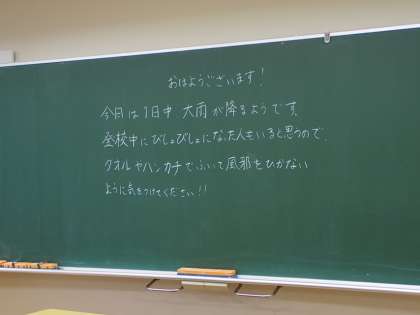 おはようございます!
今日は1日中 大雨が降るようです。
登校中にびしょびしょになった人もいると思うので、
タオルやハンカチでふいて風邪をひかない
ように気をつけてください!!